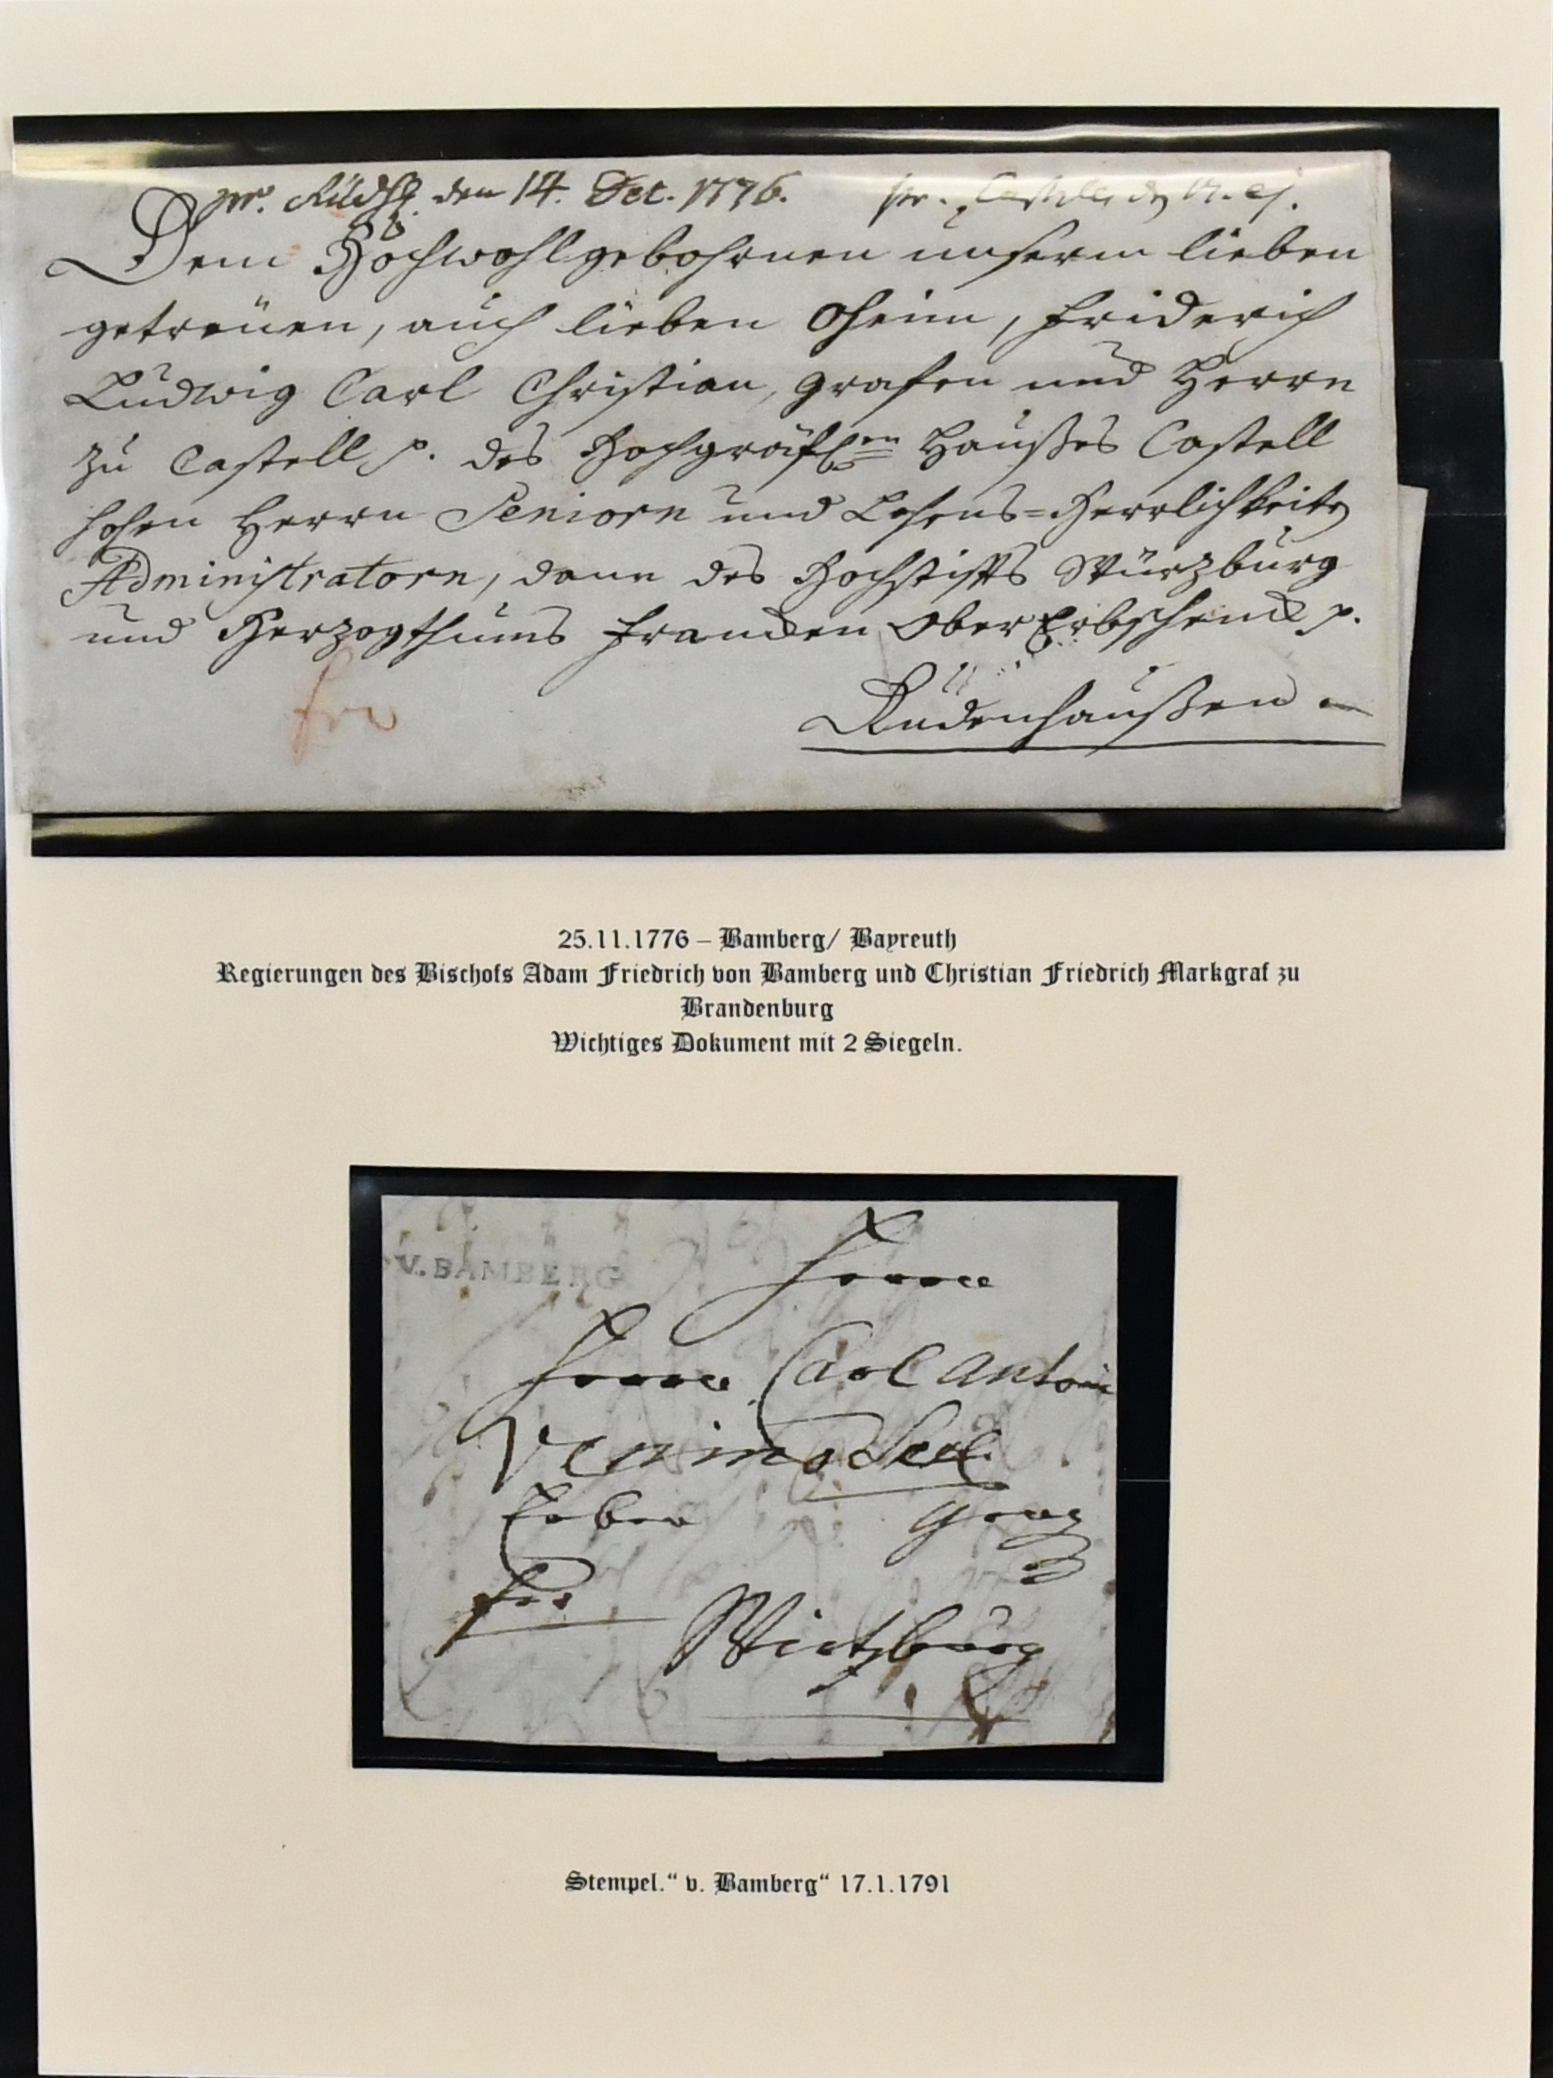 pr. Rüdh. den 14. Dec. 1776. pr. Castell, den 17. ej.
Dem Hochwohlgebohrnen unserm lieben
getreüen, auch lieben Oheim, Friderich
Ludwig Carl Christian, Grafen und Herrn
zu Castell p. des Hochgräfl<sup>en</sup> Haußes Castell
hohen Herrn Seniorn und Lehens=Herrlichkeits
Administratorn, dann des Hochstiffts Würzburg
und Herzogthums Francken Ober Erbschenck p.
fro
Rüdenhaußen
25.11.1776 – Bamberg/ Bayreuth
Regierungen des Bischofs Adam Friedrich von Bamberg und Christian Friedrich Markgraf zu
Brandenburg
Wichtiges Dokument mit 2 Siegeln.
V. BAMBERG
Herrn
Herrn Carl Anton
Venino Seel.
Erben
fro
Wirtzburg
Stempel.“ v. Bamberg“ 17.1.1791